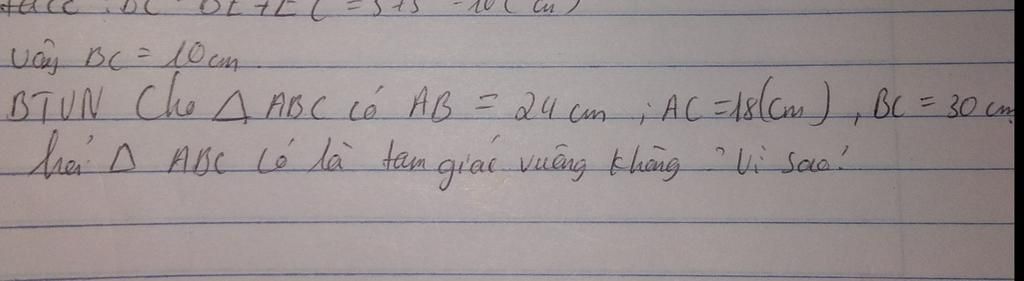 BC = BE + EC = 5 + 5 = 10 ( cm )
Vậy BC = 10 cm
BTVN Cho Δ ABC có AB = 24 cm ; AC = 18 (cm) , BC = 30 cm
hỏi Δ ABC có là tam giác vuông không ? Vì sao ?